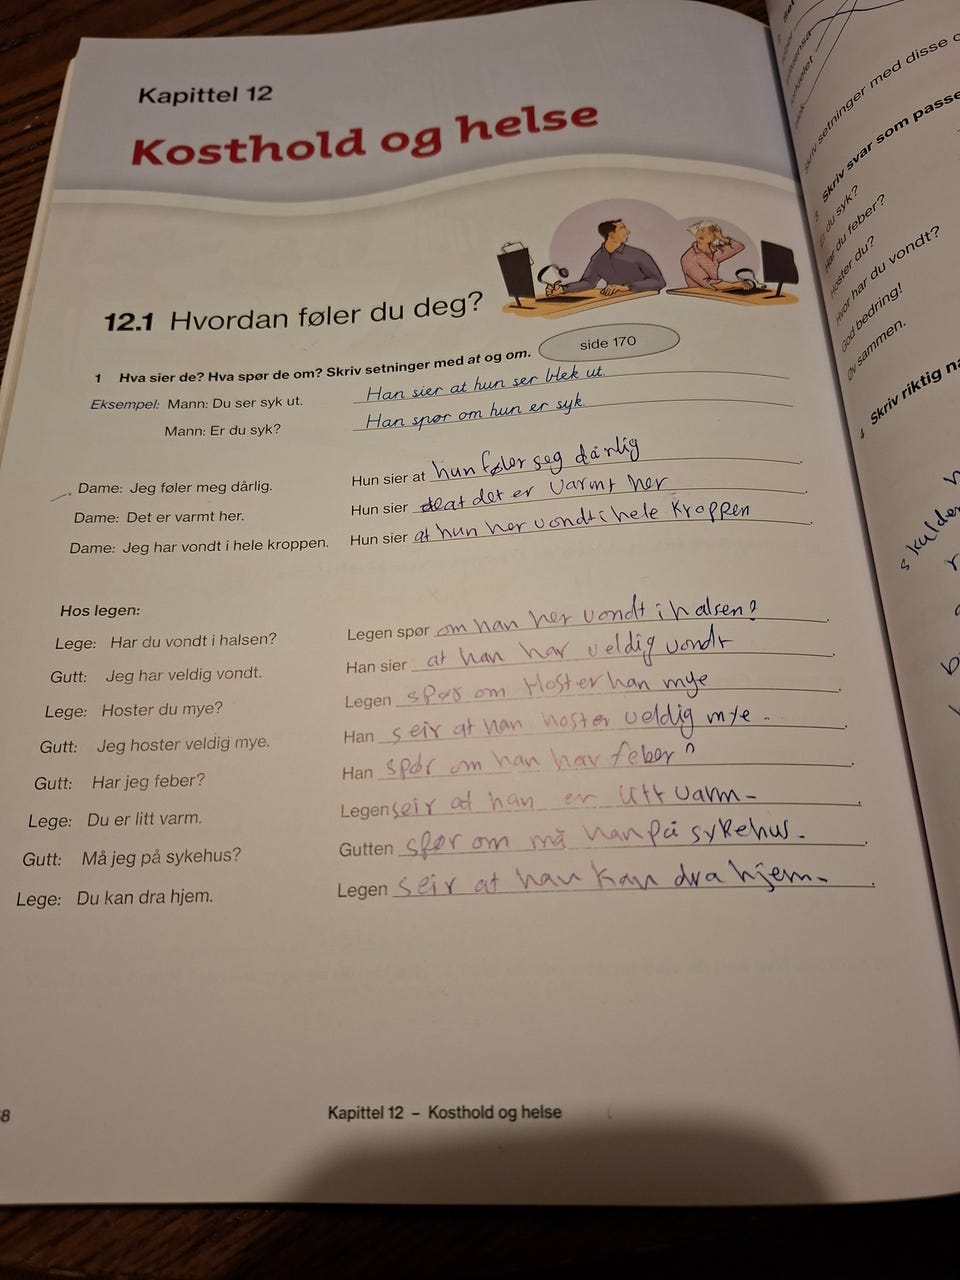 Kapittel 12
Kosthold og helse
12.1 Hvordan føler du deg?
side 170
1 Hva sier de? Hva spør de om? Skriv setninger med at og om.
Eksempel: Mann: Du ser syk ut. Han sier at hun ser blek ut.
Mann: Er du syk? Han spør om hun er syk.
Dame: Jeg føler meg dårlig. Hun sier at hun føler seg dårlig
Dame: Det er varmt her. Hun sier at det er varmt her
Dame: Jeg har vondt i hele kroppen. Hun sier at hun her vondt i hele kroppen
Hos legen:
Lege: Har du vondt i halsen? Legen spør om han her vondt i halsen?
Gutt: Jeg har veldig vondt. Han sier at han har veldig vondt
Lege: Hoster du mye? Legen spør om Hoster han mye
Gutt: Jeg hoster veldig mye. Han seir at han hoster veldig mye.
Gutt: Har jeg feber? Han spør om han har feber?
Lege: Du er litt varm. Legen seir at han er litt varm.
Gutt: Må jeg på sykehus? Gutten spør om må han på sykehus.
Lege: Du kan dra hjem. Legen seir at han kan dra hjem.
8
Kapittel 12 – Kosthold og helse
setninger med disse
3 Skriv svar som passe
du syk?
Har du feber?
Hoster du?
Hvor har du vondt?
God bedring!
sammen.
4 Skriv riktig
skulder